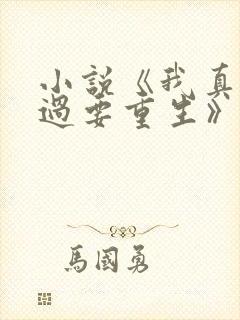 小說《我真
過要重生》
馬國勇